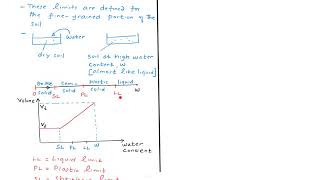 - These limits are defined for
the fine-grained portion of the
soil
- water
dry soil
soil at high water
content w
[almost like liquid]
semi- plastic liquid
solid solid
O SL PL LL w
Volume
V2
V1
SL PL LL w water
content
LL = Liquid limit
PL = Plastic limit
SL = Shrinkage limit